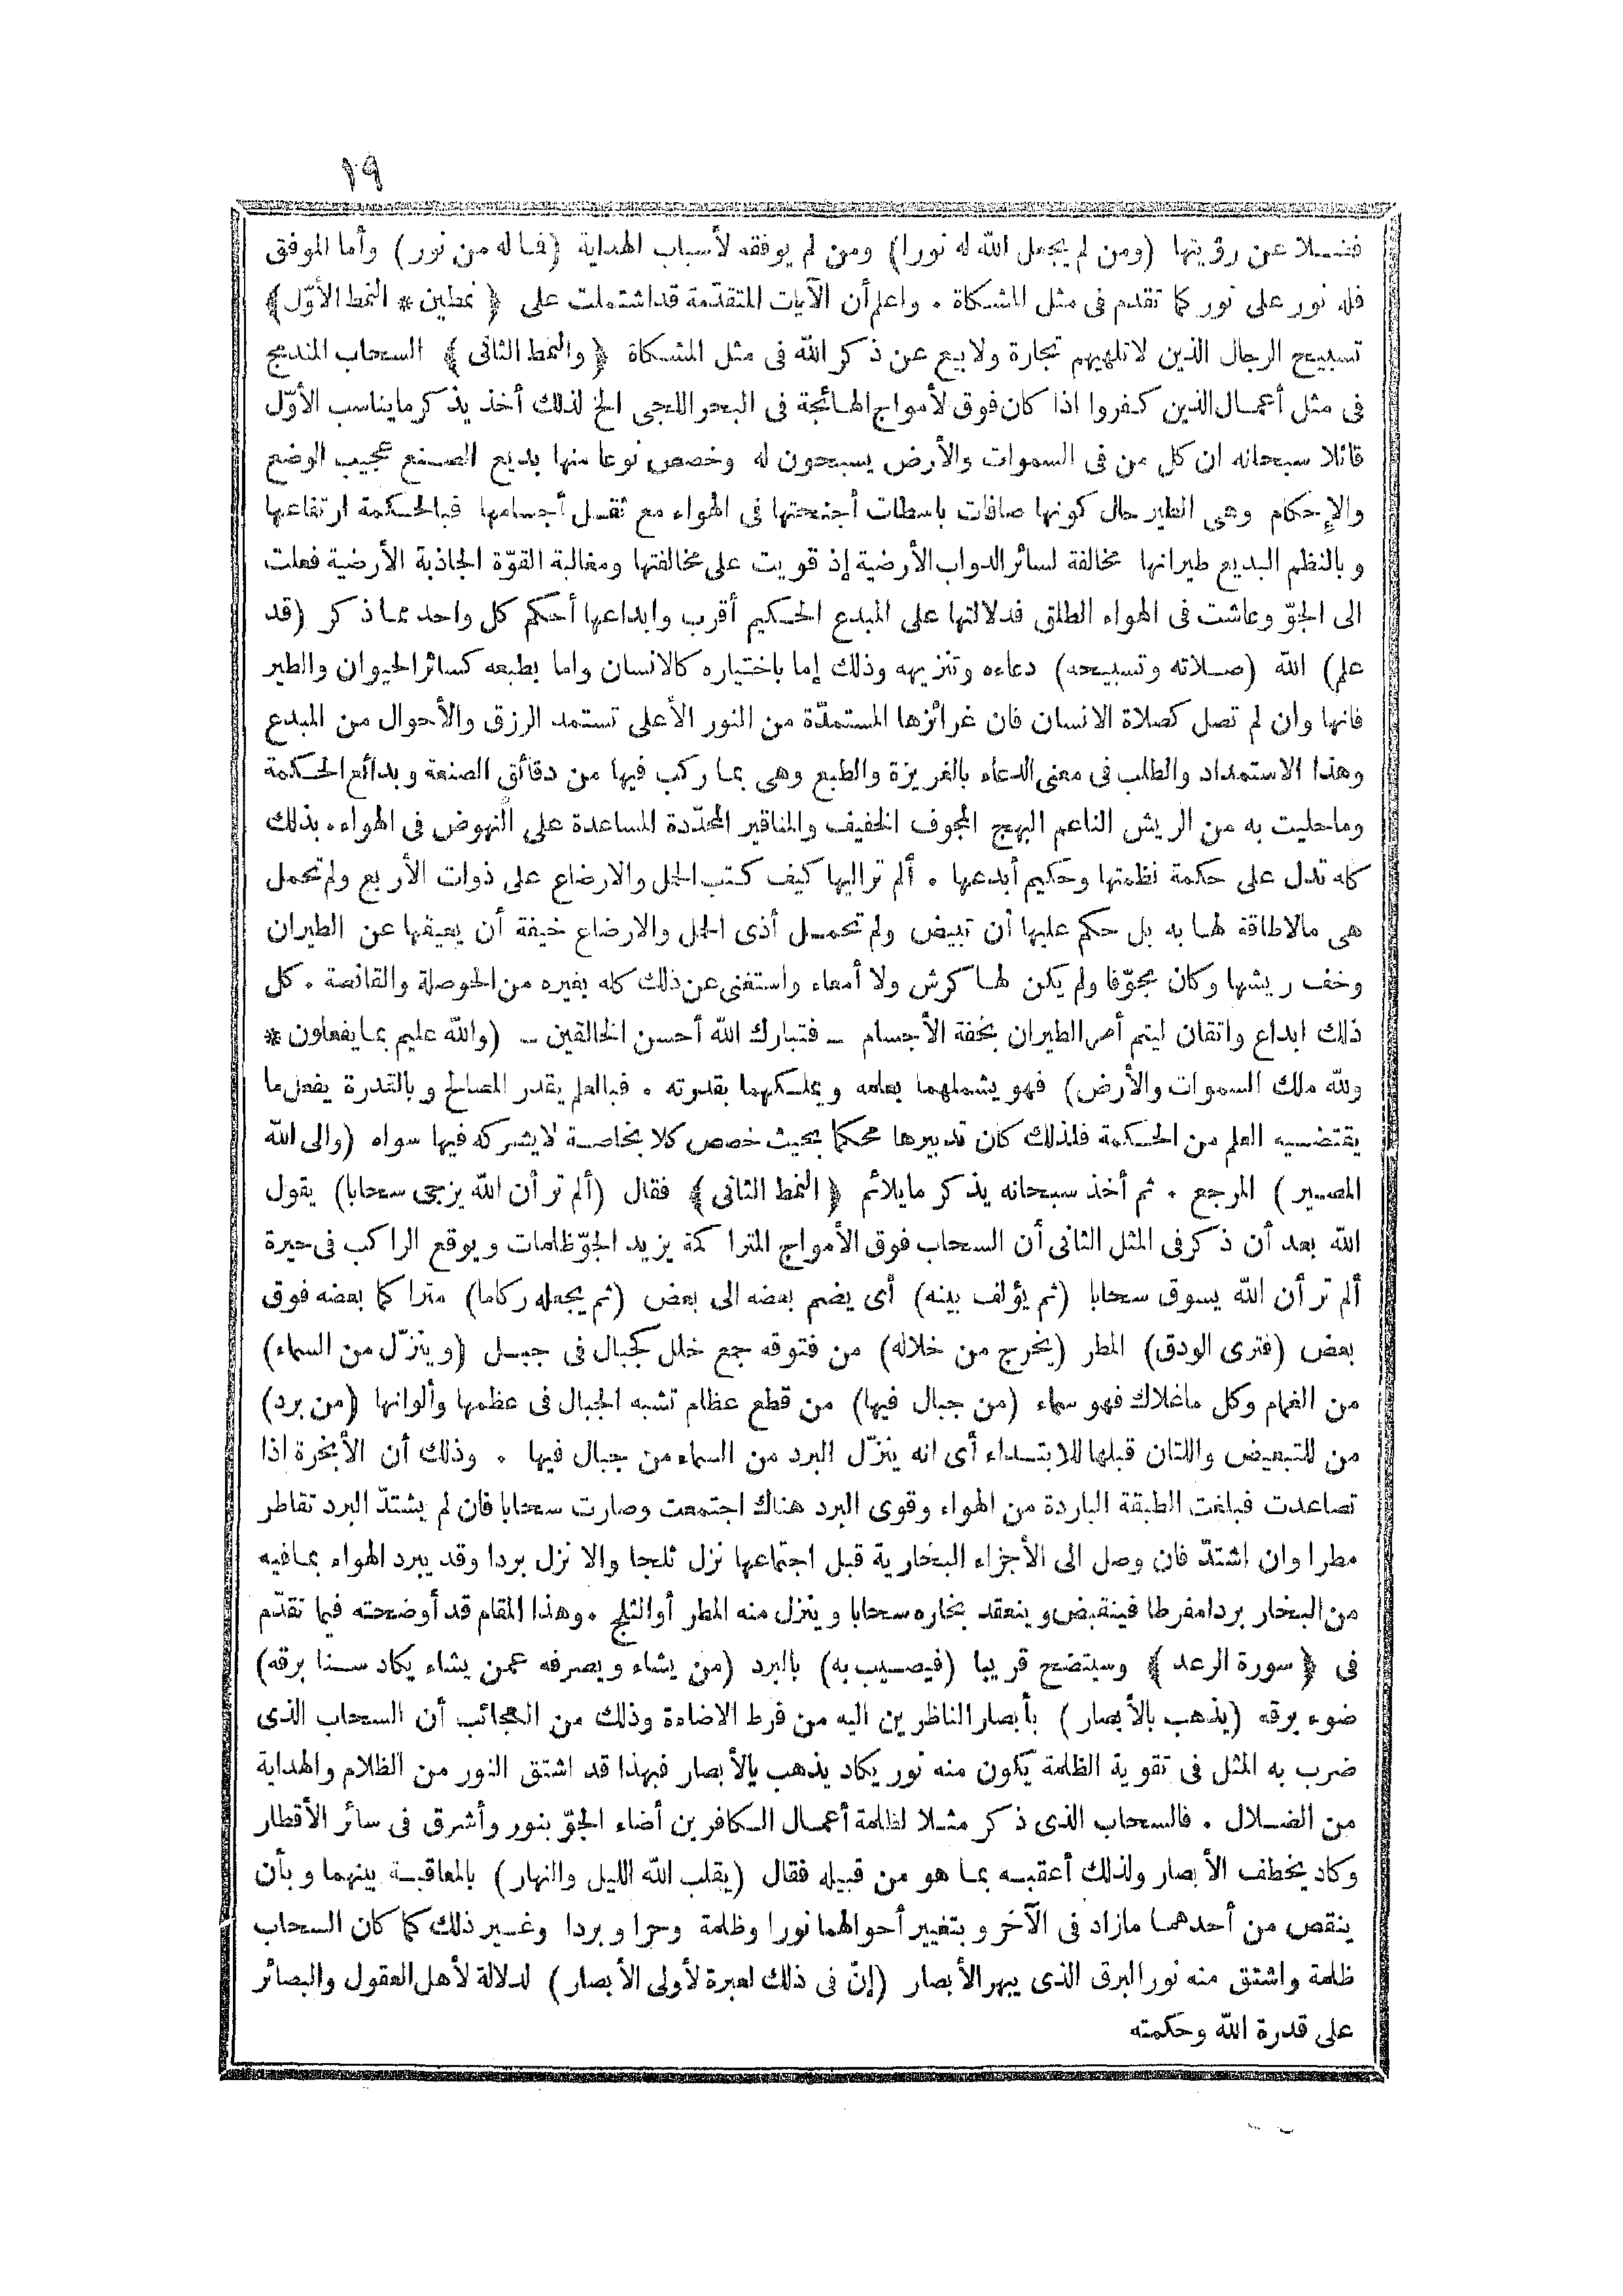 ١٩
فضلا عن رؤيتها (ومن لم يجعل الله له نورا) ومن لم يوفقه لأسباب الهداية (فما له من نور) وأما الموفق
فله نور على نور كما تقدم فى مثل المشكاة . واعلم أن الآيات المتقدّمة قد اشتملت على ﴿ نمطين * النمط الأوّل ﴾
تسبيح الرجال الذين لا تلهيهم تجارة ولا بيع عن ذكر الله فى مثل المشكاة ﴿ والنمط الثانى ﴾ السحاب المندمج
فى مثل أعمال الذين كفروا اذا كان فوق لأمواج الهائجة فى البحر اللجى الخ لذلك أخذ يذكر ما يناسب الأوّل
قائلا سبحانه ان كل من فى السموات والأرض يسبحون له وخصص نوعا منها بديع الصنع عجيب الوضع
والإحكام وهى الطير حال كونها صافات باسطات أجنحتها فى الهواء مع ثقل أجسامها فبالحكمة ارتفاعها
وبالنظم البديع طيرانها مخالفة لسائر الدواب الأرضية إذ قويت على مخالفتها ومغالبة القوّة الجاذبة الأرضية فعلت
الى الجوّ وعاشت فى الهواء الطلق فدلالتها على المبدع الحكيم أقرب وابداعها أحكم كل واحد مما ذكر (قد
علم) الله (صلاته وتسبيحه) دعاءه وتنزيهه وذلك إما باختياره كالانسان واما بطبعه كسائر الحيوان والطير
فانها وان لم تصل كصلاة الانسان فان غرائزها المستمدّة من النور الأعلى تستمد الرزق والأحوال من المبدع
وهذا الاستمداد والطلب فى معنى الدعاء بالغريزة والطبع وهى بما ركب فيها من دقائق الصنعة وبدائع الحكمة
وما حليت به من الريش الناعم البهج المجوف الخفيف والمناقير المحدّدة المساعدة على النهوض فى الهواء . بذلك
كله تدل على حكمة نظمتها وحكيم أبدعها . ألم تر اليها كيف كتب الحمل والارضاع على ذوات الأربع ولم تحمل
هى مالا طاقة لها به بل حكم عليها أن تبيض ولم تحمل أذى الحمل والارضاع خيفة أن يعيقها عن الطيران
وخف ريشها وكان مجوّفا ولم يكن لها كرش ولا أمعاء واستغنى عن ذلك كله بغيره من الحوصلة والقانصة . كل
ذلك ابداع واتقان ليتم أمر الطيران بخفة الأجسام - فتبارك الله أحسن الخالقين - (والله عليم بما يفعلون *
ولله ملك السموات والأرض) فهو يشملهما بعلمه ويملكهما بقدرته . فبالعلم يقدر المصالح وبالقدرة يفعل ما
يقتضيه العلم من الحكمة فلذلك كان تدبيرها محكما بحيث خصص كلا بخاصة لا يشركه فيها سواه (والى الله
المصير) المرجع . ثم أخذ سبحانه يذكر ما يلائم ﴿ النمط الثانى ﴾ فقال (ألم تر أن الله يزجى سحابا) يقول
الله بعد أن ذكر فى المثل الثانى أن السحاب فوق الأمواج المتراكمة يزيد الجوّ ظلمات ويوقع الراكب فى حيرة
ألم تر أن الله يسوق سحابا (ثم يؤلف بينه) أى يضم بعضه الى بعض (ثم يجعله ركاما) متراكما بعضه فوق
بعض (فترى الودق) المطر (يخرج من خلاله) من فتوقه جمع خلل كجبال فى جبل (وينزّل من السماء)
من الغمام وكل ماعلاك فهو سماء (من جبال فيها) من قطع عظام تشبه الجبال فى عظمها وألوانها (من برد)
من للتبعيض واللتان قبلها للابتداء أى انه ينزّل البرد من السماء من جبال فيها . وذلك أن الأبخرة اذا
تصاعدت فبلغت الطبقة الباردة من الهواء وقوى البرد هناك اجتمعت وصارت سحابا فان لم يشتدّ البرد تقاطر
مطرا وان اشتدّ فان وصل الى الأجزاء البخارية قبل اجتماعها نزل ثلجا والا نزل بردا وقد يبرد الهواء بما فيه
من البخار بردا مفرطا فينقبض وينعقد بخاره سحابا وينزل منه المطر أو الثلج . وهذا المقام قد أوضحته فيما تقدّم
فى ﴿ سورة الرعد ﴾ وسيتضح قريبا (فيصيب به) بالبرد (من يشاء ويصرفه عمن يشاء يكاد سنا برقه)
ضوء برقه (يذهب بالأبصار) بأبصار الناظرين اليه من فرط الاضاءة وذلك من العجائب أن السحاب الذى
ضرب به المثل فى تقوية الظلمة يكون منه نور يكاد يذهب بالأبصار فبهذا قد اشتق النور من الظلام والهداية
من الضلال . فالسحاب الذى ذكر مثلا لظلمة أعمال الكافرين أضاء الجوّ بنور وأشرق فى سائر الأقطار
وكاد يخطف الأبصار ولذلك أعقبه بما هو من قبيله فقال (يقلب الله الليل والنهار) بالمعاقبة بينهما وبأن
ينقص من أحدهما مازاد فى الآخر وبتغيير أحوالهما نورا وظلمة وحرا وبردا وغير ذلك كما كان السحاب
ظلمة واشتق منه نور البرق الذى يبهر الأبصار (إنّ فى ذلك لعبرة لأولى الأبصار) لدلالة لأهل العقول والبصائر
على قدرة الله وحكمته